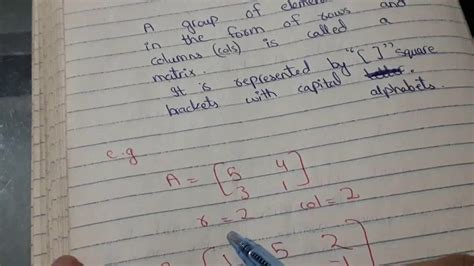 A group of element
in the form of rows and
columns (cols) is called a
matrix.
It is represented by "[ ]" square
brackets with capital alphabets.
e.g
A = [5 4
3 1]
r = 2 col = 2
[1 5 2]